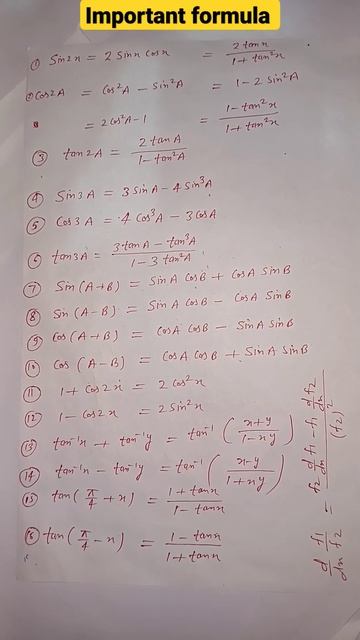 Important formula
① Sin2x = 2 Sinx Cosx = 2 tanx / 1 + tan²x
② Cos2A = Cos²A − Sin²A = 1 − 2 Sin²A
= 2Cos²A − 1 = 1 − tan²x / 1 + tan²x
③ tan2A = 2 tanA / 1 − tan²A
④ Sin3A = 3 SinA − 4 Sin³A
⑤ Cos3A = 4 Cos³A − 3 CosA
⑥ tan3A = 3 tanA − tan³A / 1 − 3 tan²A
⑦ Sin (A+B) = SinA CosB + CosA SinB
⑧ Sin (A−B) = SinA CosB − CosA SinB
⑨ Cos (A+B) = CosA CosB − SinA SinB
⑩ Cos (A−B) = CosA CosB + SinA SinB
⑪ 1 + Cos2x = 2 Cos²x
⑫ 1 − Cos2x = 2 Sin²x
⑬ tan⁻¹x + tan⁻¹y = tan⁻¹ ( x+y / 1−xy )
⑭ tan⁻¹x − tan⁻¹y = tan⁻¹ ( x−y / 1+xy )
⑮ tan ( π/4 + x ) = 1 + tanx / 1 − tanx
⑯ tan ( π/4 − x ) = 1 − tanx / 1 + tanx
d/dx f₁/f₂ = f₂ d/dx f₁ − f₁ d/dx f₂ / (f₂)²